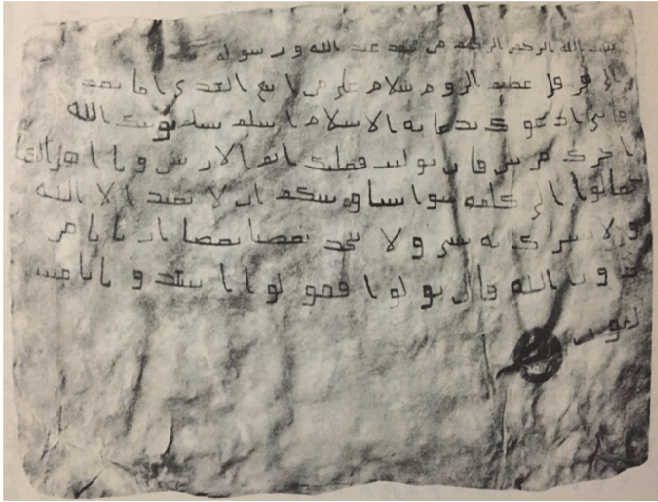 بسم الله الرحمن الرحيم من محمد عبد الله و رسوله
إلى هرقل عظيم الروم سلام على من اتبع الهدى اما بعد
فاني ادعوك بدعاية الاسلام اسلم تسلم يوتيك الله
اجرك مرتين فان توليت فعليك اثم الاريسين و يا اهل الكتا
تعالوا الى كلمة سوا بيننا وبينكم ان لا نعبد الا الله
ولا نشرك به شي و لا يتخذ بعضنا بعضا اربابا من
دون الله فان تولوا فقولوا اشهدوا بانا مسلمون